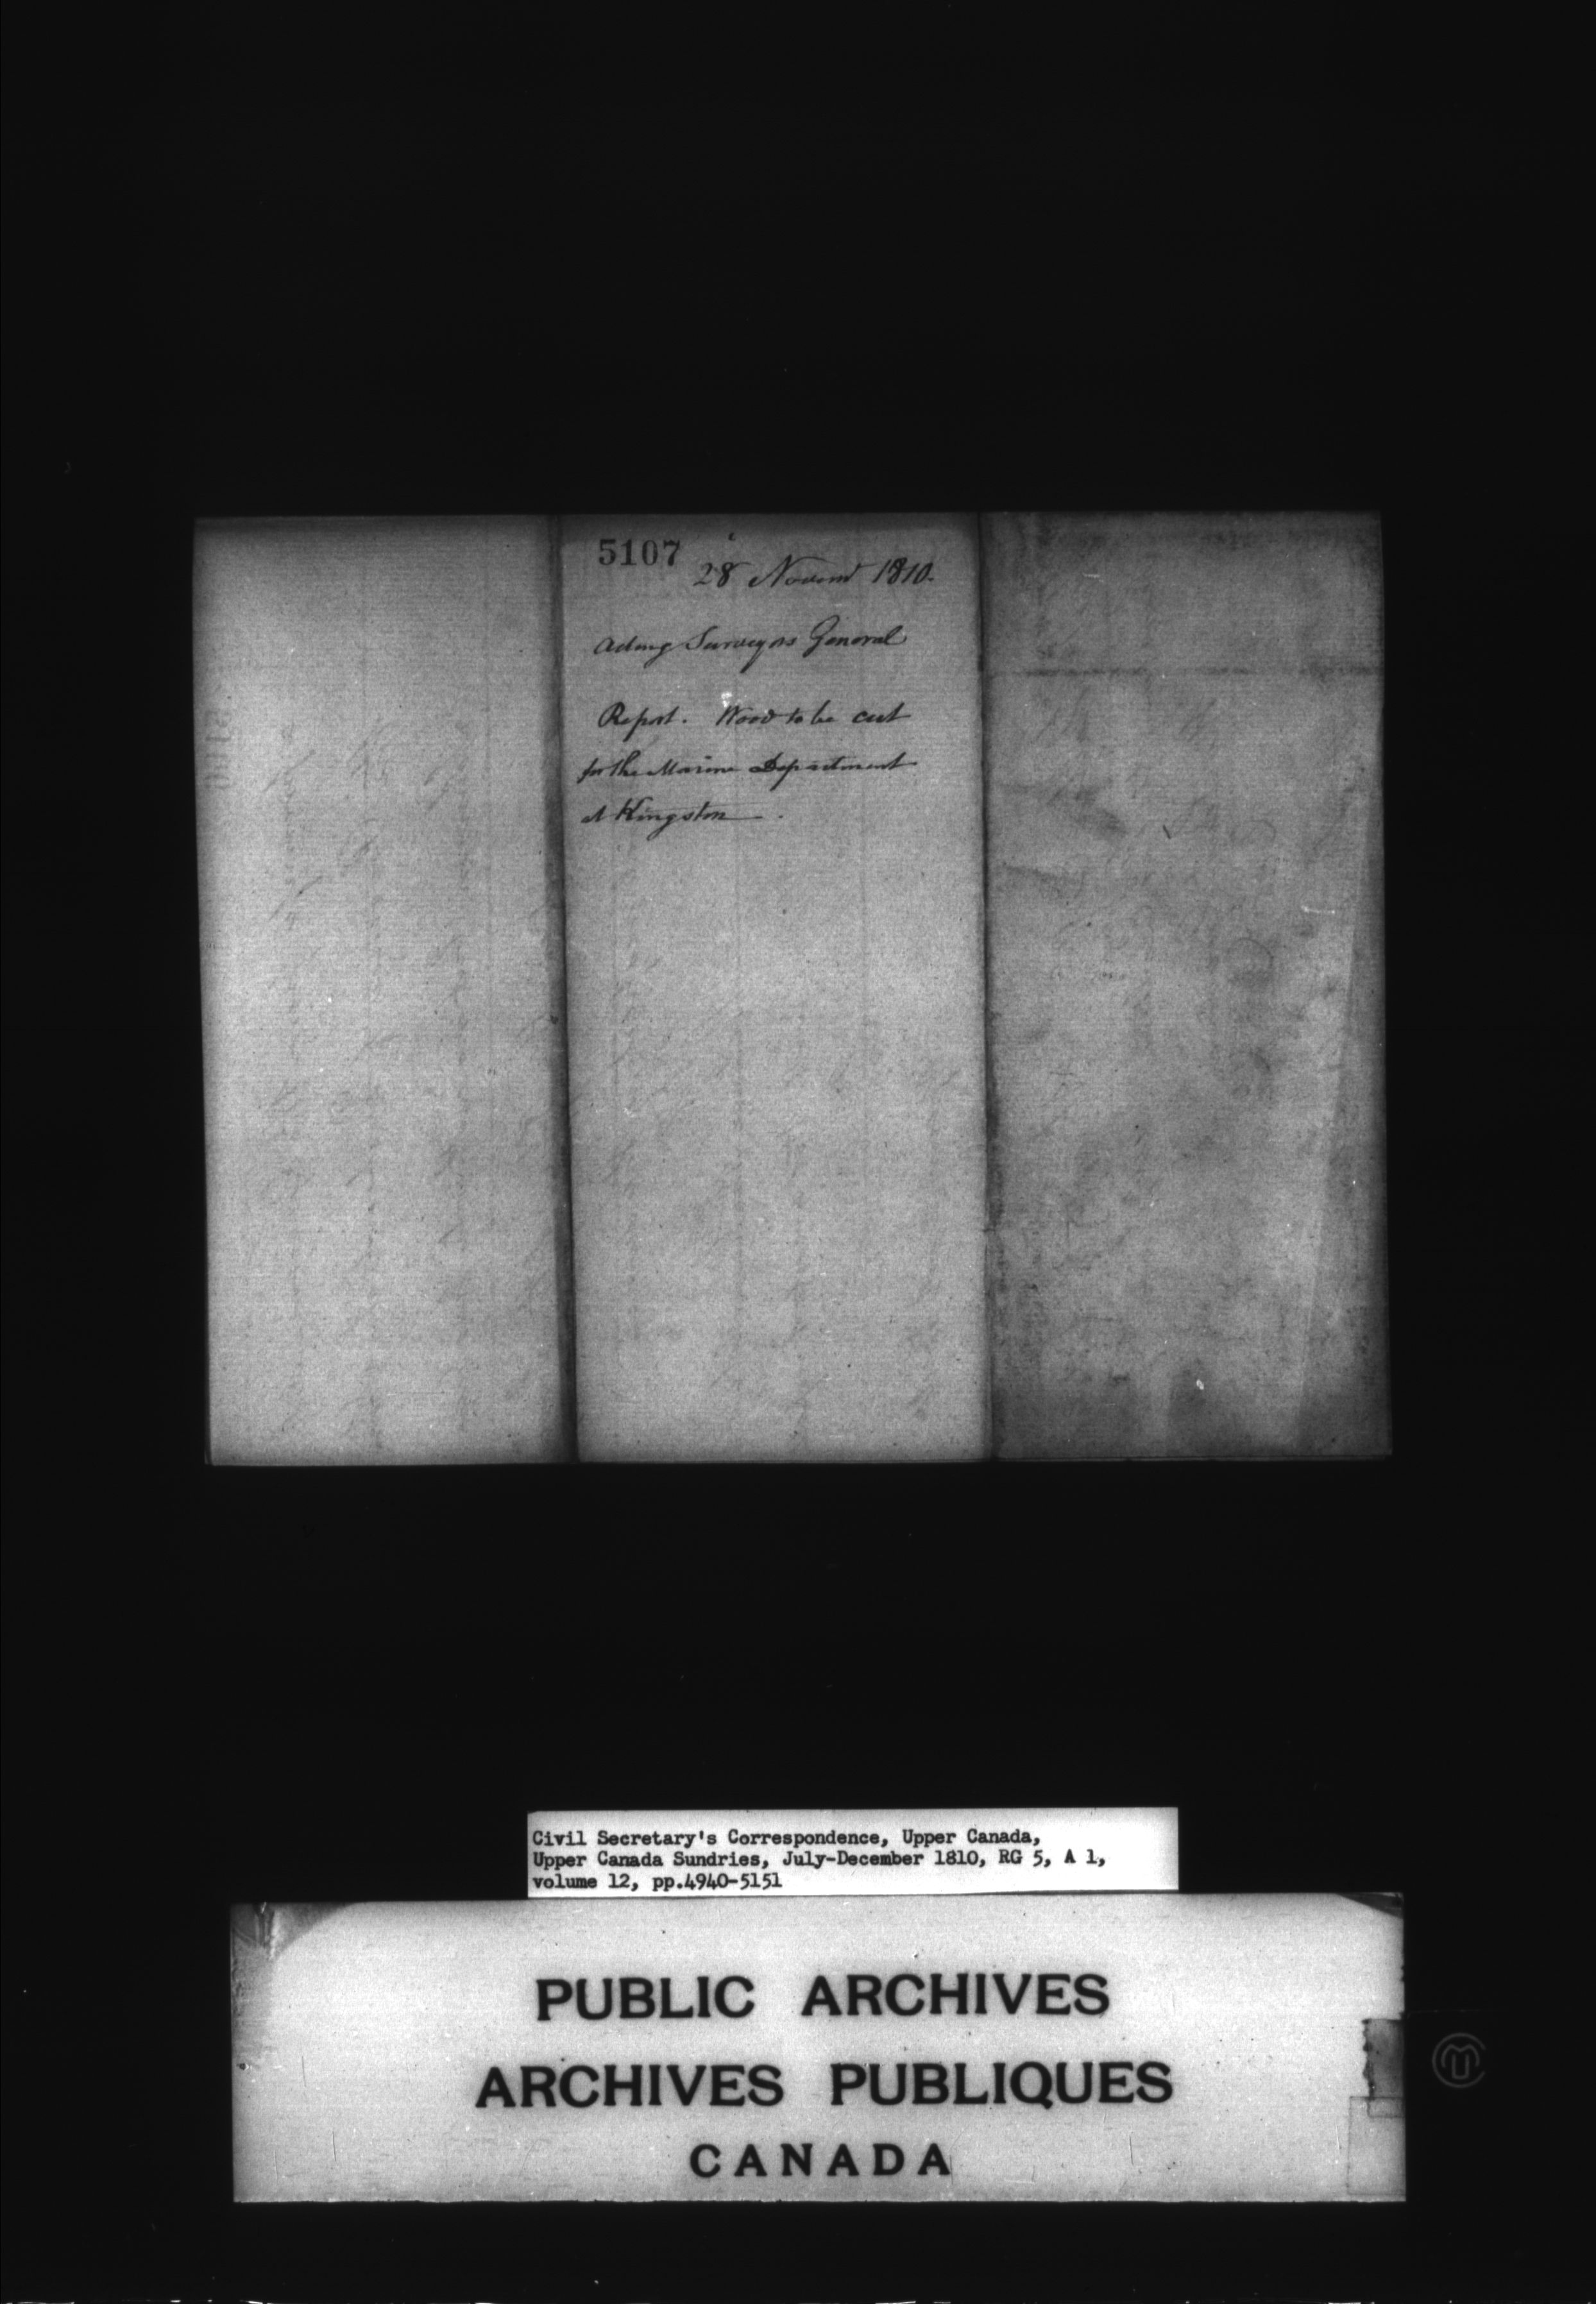 5107
28 Novemr 1810.
Acting Surveyors General
Report. Wood to be cut
for the Marine Department
at Kingston.
Civil Secretary's Correspondence, Upper Canada,
Upper Canada Sundries, July-December 1810, RG 5, A 1,
volume 12, pp.4940-5151
PUBLIC ARCHIVES
ARCHIVES PUBLIQUES
CANADA